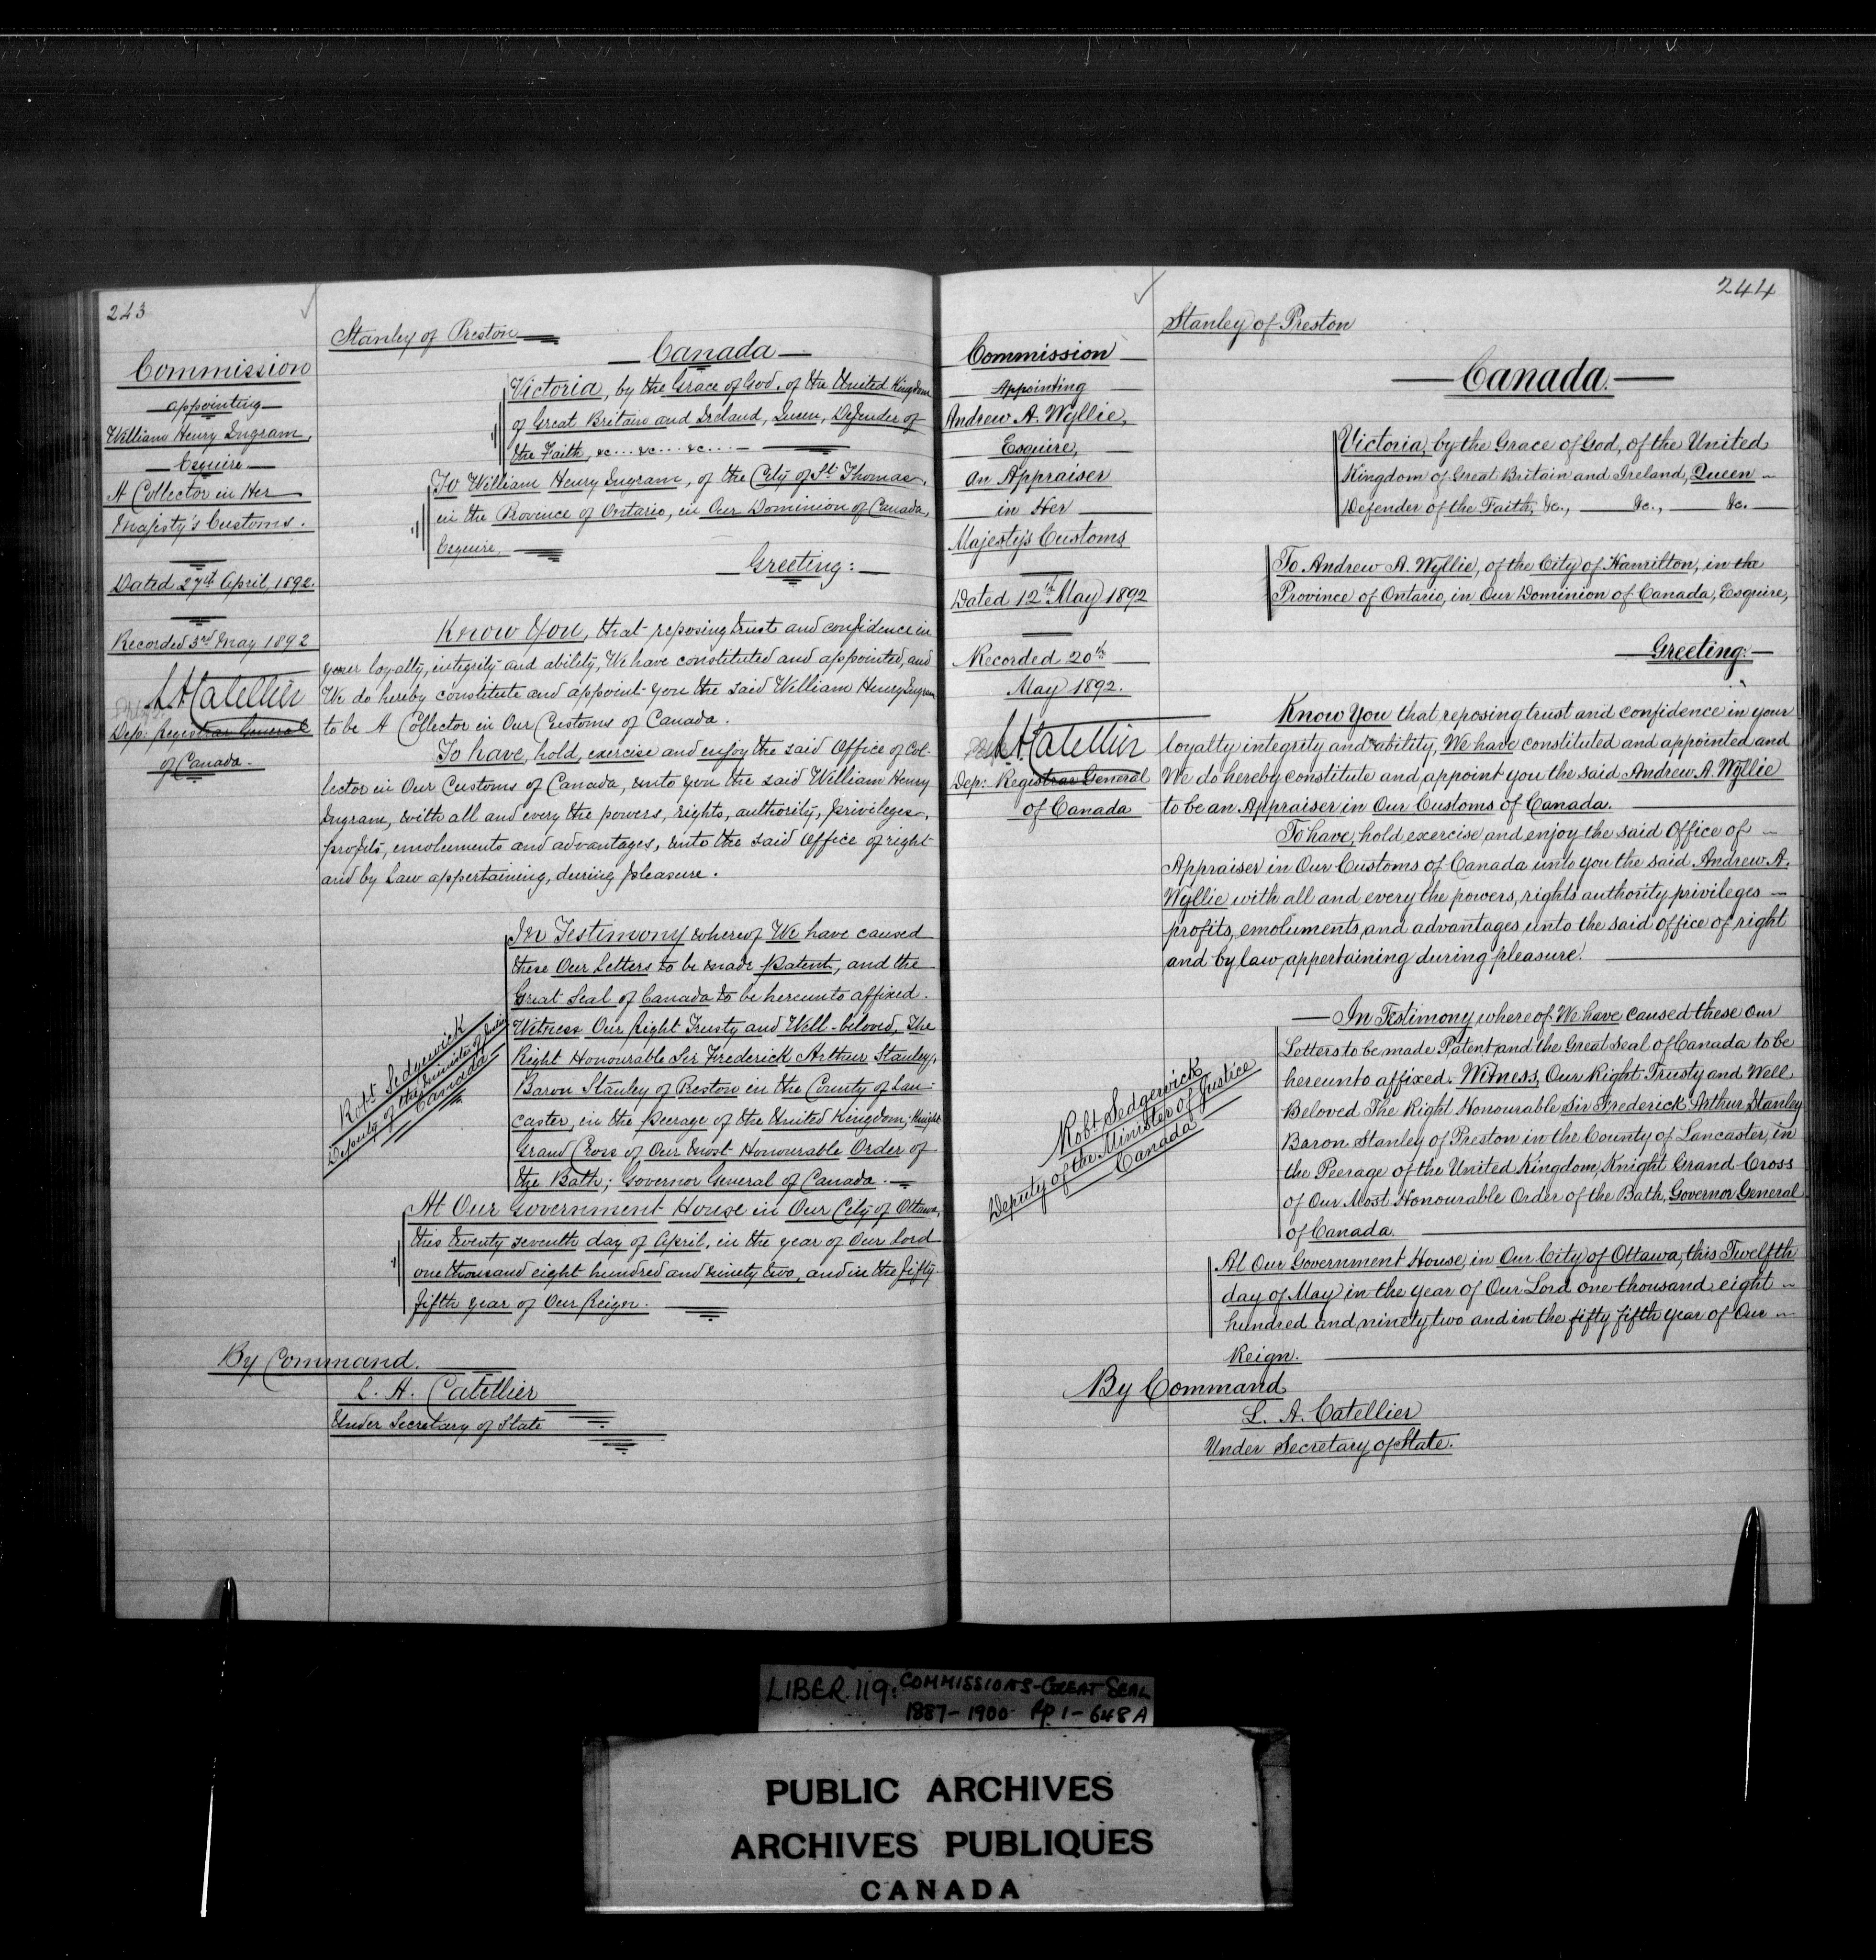 243
Commission
appointing
William Henry Ingram,
Esquire
A Collector in Her
Majesty's Customs.
Dated 27th April 1892.
Recorded 3rd May 1892
L. A. Catellier
Dep: Registrar General
of Canada.
Stanley of Preston
Canada
Victoria, by the Grace of God, of the United Kingdom
of Great Britain and Ireland, Queen, Defender of
the Faith, &c... &c... &c...
To William Henry Ingram, of the City of St. Thomas,
in the Province of Ontario, in Our Dominion of Canada,
Esquire,
Greeting:
Know You, that reposing trust and confidence in
your loyalty, integrity and ability, We have constituted and appointed, and
We do hereby constitute and appoint you the said William Henry Ingram
to be A Collector in Our Customs of Canada.
To have, hold, exercise and enjoy the said Office of Col-
lector in Our Customs of Canada, unto you the said William Henry
Ingram, with all and every the powers, rights, authority, privileges,
profits, emoluments and advantages, unto the said Office of right
and by Law appertaining, during pleasure.
In Testimony whereof We have caused
these Our Letters to be made Patent, and the
Great Seal of Canada to be hereunto affixed.
Witness Our Right Trusty and Well-beloved, The
Right Honourable Sir Frederick Arthur Stanley,
Baron Stanley of Preston in the County of Lan-
caster, in the Peerage of the United Kingdom; Knight
Grand Cross of Our Most Honourable Order of
the Bath; Governor General of Canada.
Robt Sedgewick
Deputy of the Minister of Justice
Canada
At Our Government House in Our City of Ottawa,
this twenty seventh day of April, in the year of Our Lord
one thousand eight hundred and ninety two, and in the fifty
fifth year of Our Reign.
By Command.
L. A. Catellier
Under Secretary of State
244
Commission
Appointing
Andrew A. Wyllie,
Esquire,
an Appraiser
in Her
Majesty's Customs
Dated 12th May 1892
Recorded 20th
May 1892.
L. A. Catellier
Dep: Registrar General
of Canada
Stanley of Preston
Canada.
Victoria, by the Grace of God, of the United
Kingdom of Great Britain and Ireland, Queen
Defender of the Faith, &c., &c., &c.
To Andrew A. Wyllie, of the City of Hamilton, in the
Province of Ontario, in Our Dominion of Canada, Esquire,
Greeting:
Know You that reposing trust and confidence in your
loyalty integrity and ability, We have constituted and appointed and
We do hereby constitute and appoint you the said Andrew A. Wyllie
to be an Appraiser in Our Customs of Canada.
To have, hold exercise and enjoy the said Office of
Appraiser in Our Customs of Canada unto you the said Andrew A.
Wyllie with all and every the powers, rights authority privileges
profits, emoluments, and advantages unto the said office of right
and by law appertaining during pleasure.
In Testimony where of We have caused these Our
Letters to be made Patent, and the Great Seal of Canada to be
hereunto affixed. Witness, Our Right Trusty and Well
Beloved The Right Honourable Sir Frederick Arthur Stanley
Baron Stanley of Preston in the County of Lancaster, in
the Peerage of the United Kingdom, Knight Grand Cross
of Our Most Honourable Order of the Bath, Governor General
of Canada.
Robt. Sedgewick
Deputy of the Minister of Justice
Canada
At Our Government House, in Our City of Ottawa, this Twelfth
day of May in the year of Our Lord one thousand eight
hundred and ninety two and in the fifty fifth year of Our
Reign.
By Command
L. A. Catellier
Under Secretary of State.
LIBER. 119: COMMISSIONS-GREAT SEAL
1887-1900 Pp 1-648A
PUBLIC ARCHIVES
ARCHIVES PUBLIQUES
CANADA